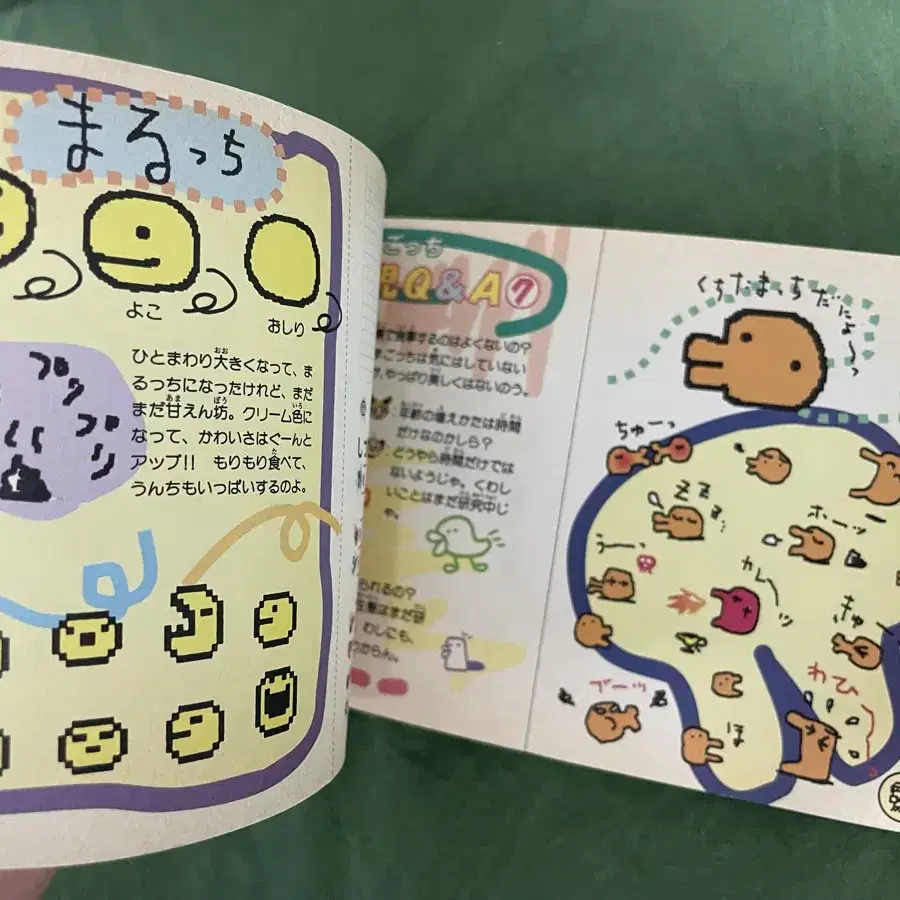 まるっち
よこ
おしり
ひとまわり大きくなって、ま
るっちになったけれど、まだ
まだ甘えん坊。クリーム色に
なって、かわいさはぐーんと
アップ!! もりもり食べて、
うんちもいっぱいするのよ。
プリ
ごっち
Q&A⑦
食事するのはよくないの?
ごっちは気にはしていない
やっぱり美しくはないのう。
年齢の増えかたは時間
だけなのかしら?
どうやら時間だけでは
ないようじゃ。くわし
いことはまだ研究中じ
ゃ。
られるの?
はまだ研
わしにも、
つからん。
くちたまっちだによ〜っ
ちゅーっ
ZZZ
ホーッ
うーっ
カーッ
きゅ
ブーッ
ほ
わひ